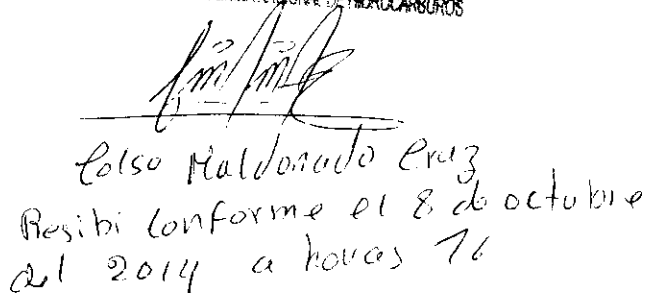 DE HIDROCARBUROS
Celso Maldonado Cruz
Resibi conforme el 8 de octubre
del 2014 a horas 16